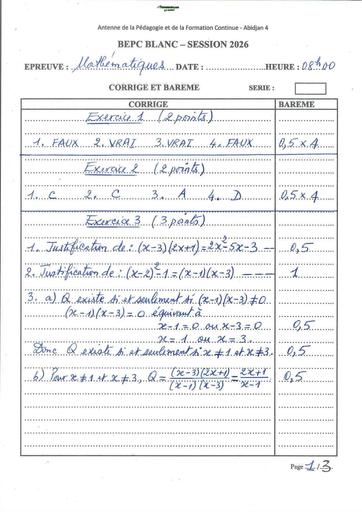 Antenne de la Pédagogie et de la Formation Continue - Abidjan 4
BEPC BLANC – SESSION 2026
EPREUVE : Mathématiques DATE : HEURE : 08h00
CORRIGE ET BAREME SERIE :
CORRIGE BAREME
Exercice 1 (2 points)
1. FAUX 2. VRAI 3. VRAI 4. FAUX 0,5 × 4
Exercice 2 (2 points)
1. C 2. C 3. A 4. D 0,5 × 4
Exercice 3 (3 points)
1. Justification de : (x-3)(2x+1) = 2x²-5x-3 0,5
2. Justification de : (x-2)²-1 = (x-1)(x-3) 1
3. a) Q existe si et seulement si (x-1)(x-3) ≠ 0
(x-1)(x-3) = 0 équivaut à
x-1 = 0 ou x-3 = 0 0,5
x = 1 ou x = 3.
Donc Q existe si et seulement si x ≠ 1 et x ≠ 3. 0,5
b) Pour x ≠ 1 et x ≠ 3, Q = (x-3)(2x+1)/(x-1)(x-3) = 2x+1/x-1 0,5
Page 1/3